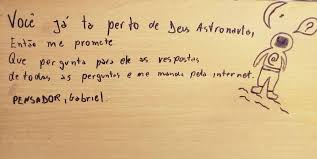 Você já ta perto de Deus Astronauta,
Então me promete
Que pergunta para ele as respostas
de todas as perguntas e me manda pela internet.
PENSADOR, Gabriel